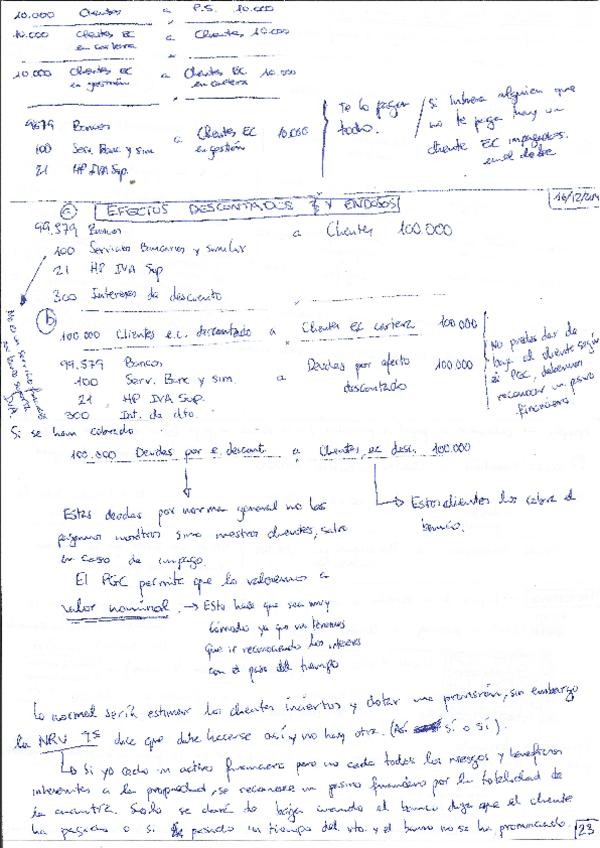 10.000 Clientes a P.S. 10.000
10.000 Clientes EC en cartera a Clientes 10.000
10.000 Clientes EC en gestión a Clientes EC en cartera 10.000
9879 Bancos a Clientes EC en gestión 10.000
100 Serv. Banc y sim
21 HP IVA Sop.
Te lo pagan todo.
Si hubiera alguien que no te paga hay un cliente EC impagados en el debe
16/12/
a EFECTOS DESCONTADOS Y ENDOSOS
99.579 Bancos a Clientes 100.000
100 Servicios Bancarios y similar
21 HP IVA Sop
300 Intereses de descuento
No es un servicio
IVA
b
100.000 Clientes e.c. descontado a Clientes EC cartera 100.000
99.579 Bancos a Deudas por efecto descontado 100.000
100 Serv. Banc y sim.
21 HP IVA Sop.
300 Int. de dto.
No puedes dar de baja el cliente según el PGC, debemos reconocer un pasivo financiero.
Si se han cobrado
100.000 Deudas por e. descont. a Clientes ec des. 100.000
Estas deudas por norma general no las
pagamos nosotros sino nuestros clientes, salvo
en caso de impago.
Estos clientes los cobra el
banco.
El PGC permite que lo valoremos a
valor nominal. → Esto hace que sea muy
cómodo ya que no tenemos
que ir reconociendo los intereses
con el paso del tiempo
Lo normal sería estimar los clientes inciertos y dotar una provisión, sin embargo
la NRV 9ª dice que debe hacerse así y no hay otra. (Así sí o sí).
Si yo cedo un activo financiero pero no cedo todos los riesgos y beneficios
inherentes a la propiedad, se reconoce un pasivo financiero por la totalidad de
la cuantía. Solo se dará de baja cuando el banco diga que el cliente
ha pagado o si pasado un tiempo del vto. y el banco no se ha pronunciado.
23